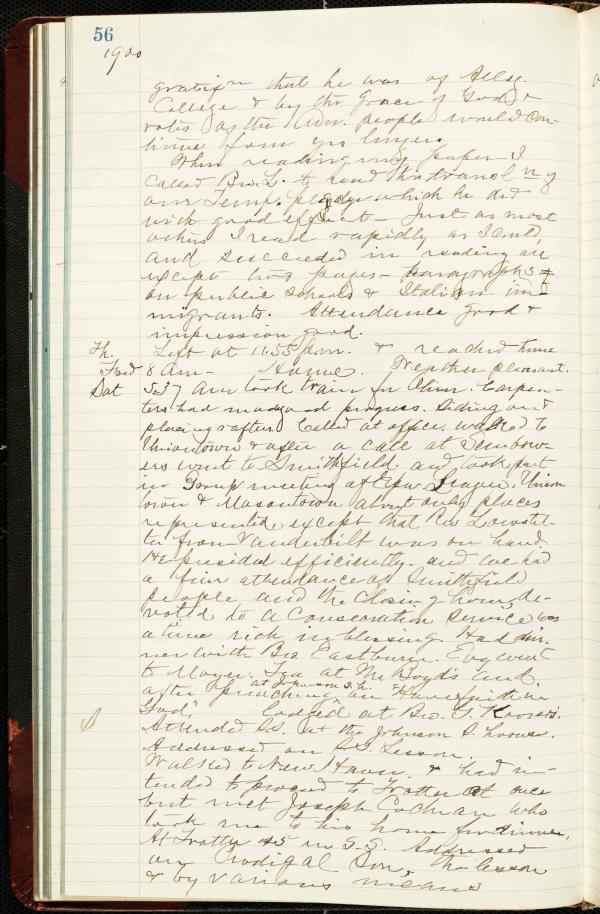 56
1900
that he was of Alleg.
College & by the Grace of God &
votes of the people would con-
tinue for yrs longer.
When reading my paper I
called Bro. L. to read the
our Temp. pledge which he did
with good effect - Just as most
others I read rapidly as I could
and succeeded in reading all
except two pages - paragraphs
on public schools & Italian im-
migrants. Attendance good &
impression good.
Th. Left at 11:55 p.m. & reached
8 am - Home. Weather pleasant.
Sat 5.37 am took train for Carpen-
ters had made good progress. Siding and
placing rafters. Called at office. walked to
Uniontown & after a call at
went to Smithfield. and took part
in Group meeting of Epw. League. Union
town & Masontown about only places
represented except that Rev
from Vanderbilt was on hand
He presided efficiently. and we had
a fine attendance of Smithfield
people and the closing hour, de-
voted to a Consecration Service, was
a time rich in blessing. Had din-
ner with Bro Eastburn. Evg went
to Moyer. Tea at McBoyd's and
after preaching at Johnson S.H. on "Have faith in
God," lodged at Bro.
S Attended S.S. at the Johnson S. House.
Addressed on S.S. Lesson.
Walked to New Haven, & had in-
tended to proceed to Trotter at once
but met Joseph Cochran who
took me to his home for dinner.
At Trotter 45 in S.S. Addressed
on Prodigal Son, the lesson
& by various means